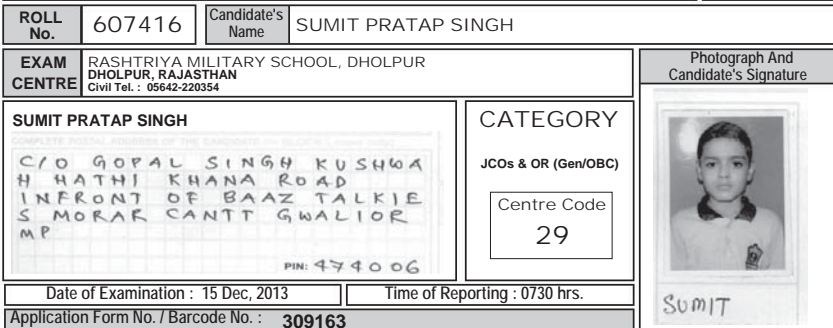 ROLL No. 607416 Candidate's Name SUMIT PRATAP SINGH
EXAM CENTRE RASHTRIYA MILITARY SCHOOL, DHOLPUR
DHOLPUR, RAJASTHAN
Civil Tel. : 05642-220354
Photograph And
Candidate's Signature
SUMIT PRATAP SINGH
COMPLETE POSTAL ADDRESS OF THE CANDIDATE
C/O GOPAL SINGH KUSHWA
H HATHI KHANA ROAD
INFRONT OF BAAZ TALKIE
S MORAR CANTT GWALIOR
MP
PIN: 474006
CATEGORY
JCOs & OR (Gen/OBC)
Centre Code
29
SUMIT
Date of Examination : 15 Dec, 2013 Time of Reporting : 0730 hrs.
Application Form No. / Barcode No. : 309163